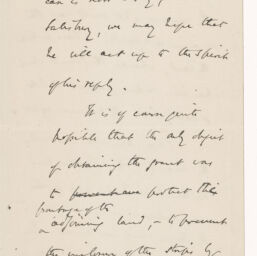 Salisbury, we may hope that
he will act up to the spirit
of his reply.
It is of course quite
possible that the only object
of obtaining the grant was
to protect the
frontage of the
adjoining land, – to prevent
the inclosure of the strips by